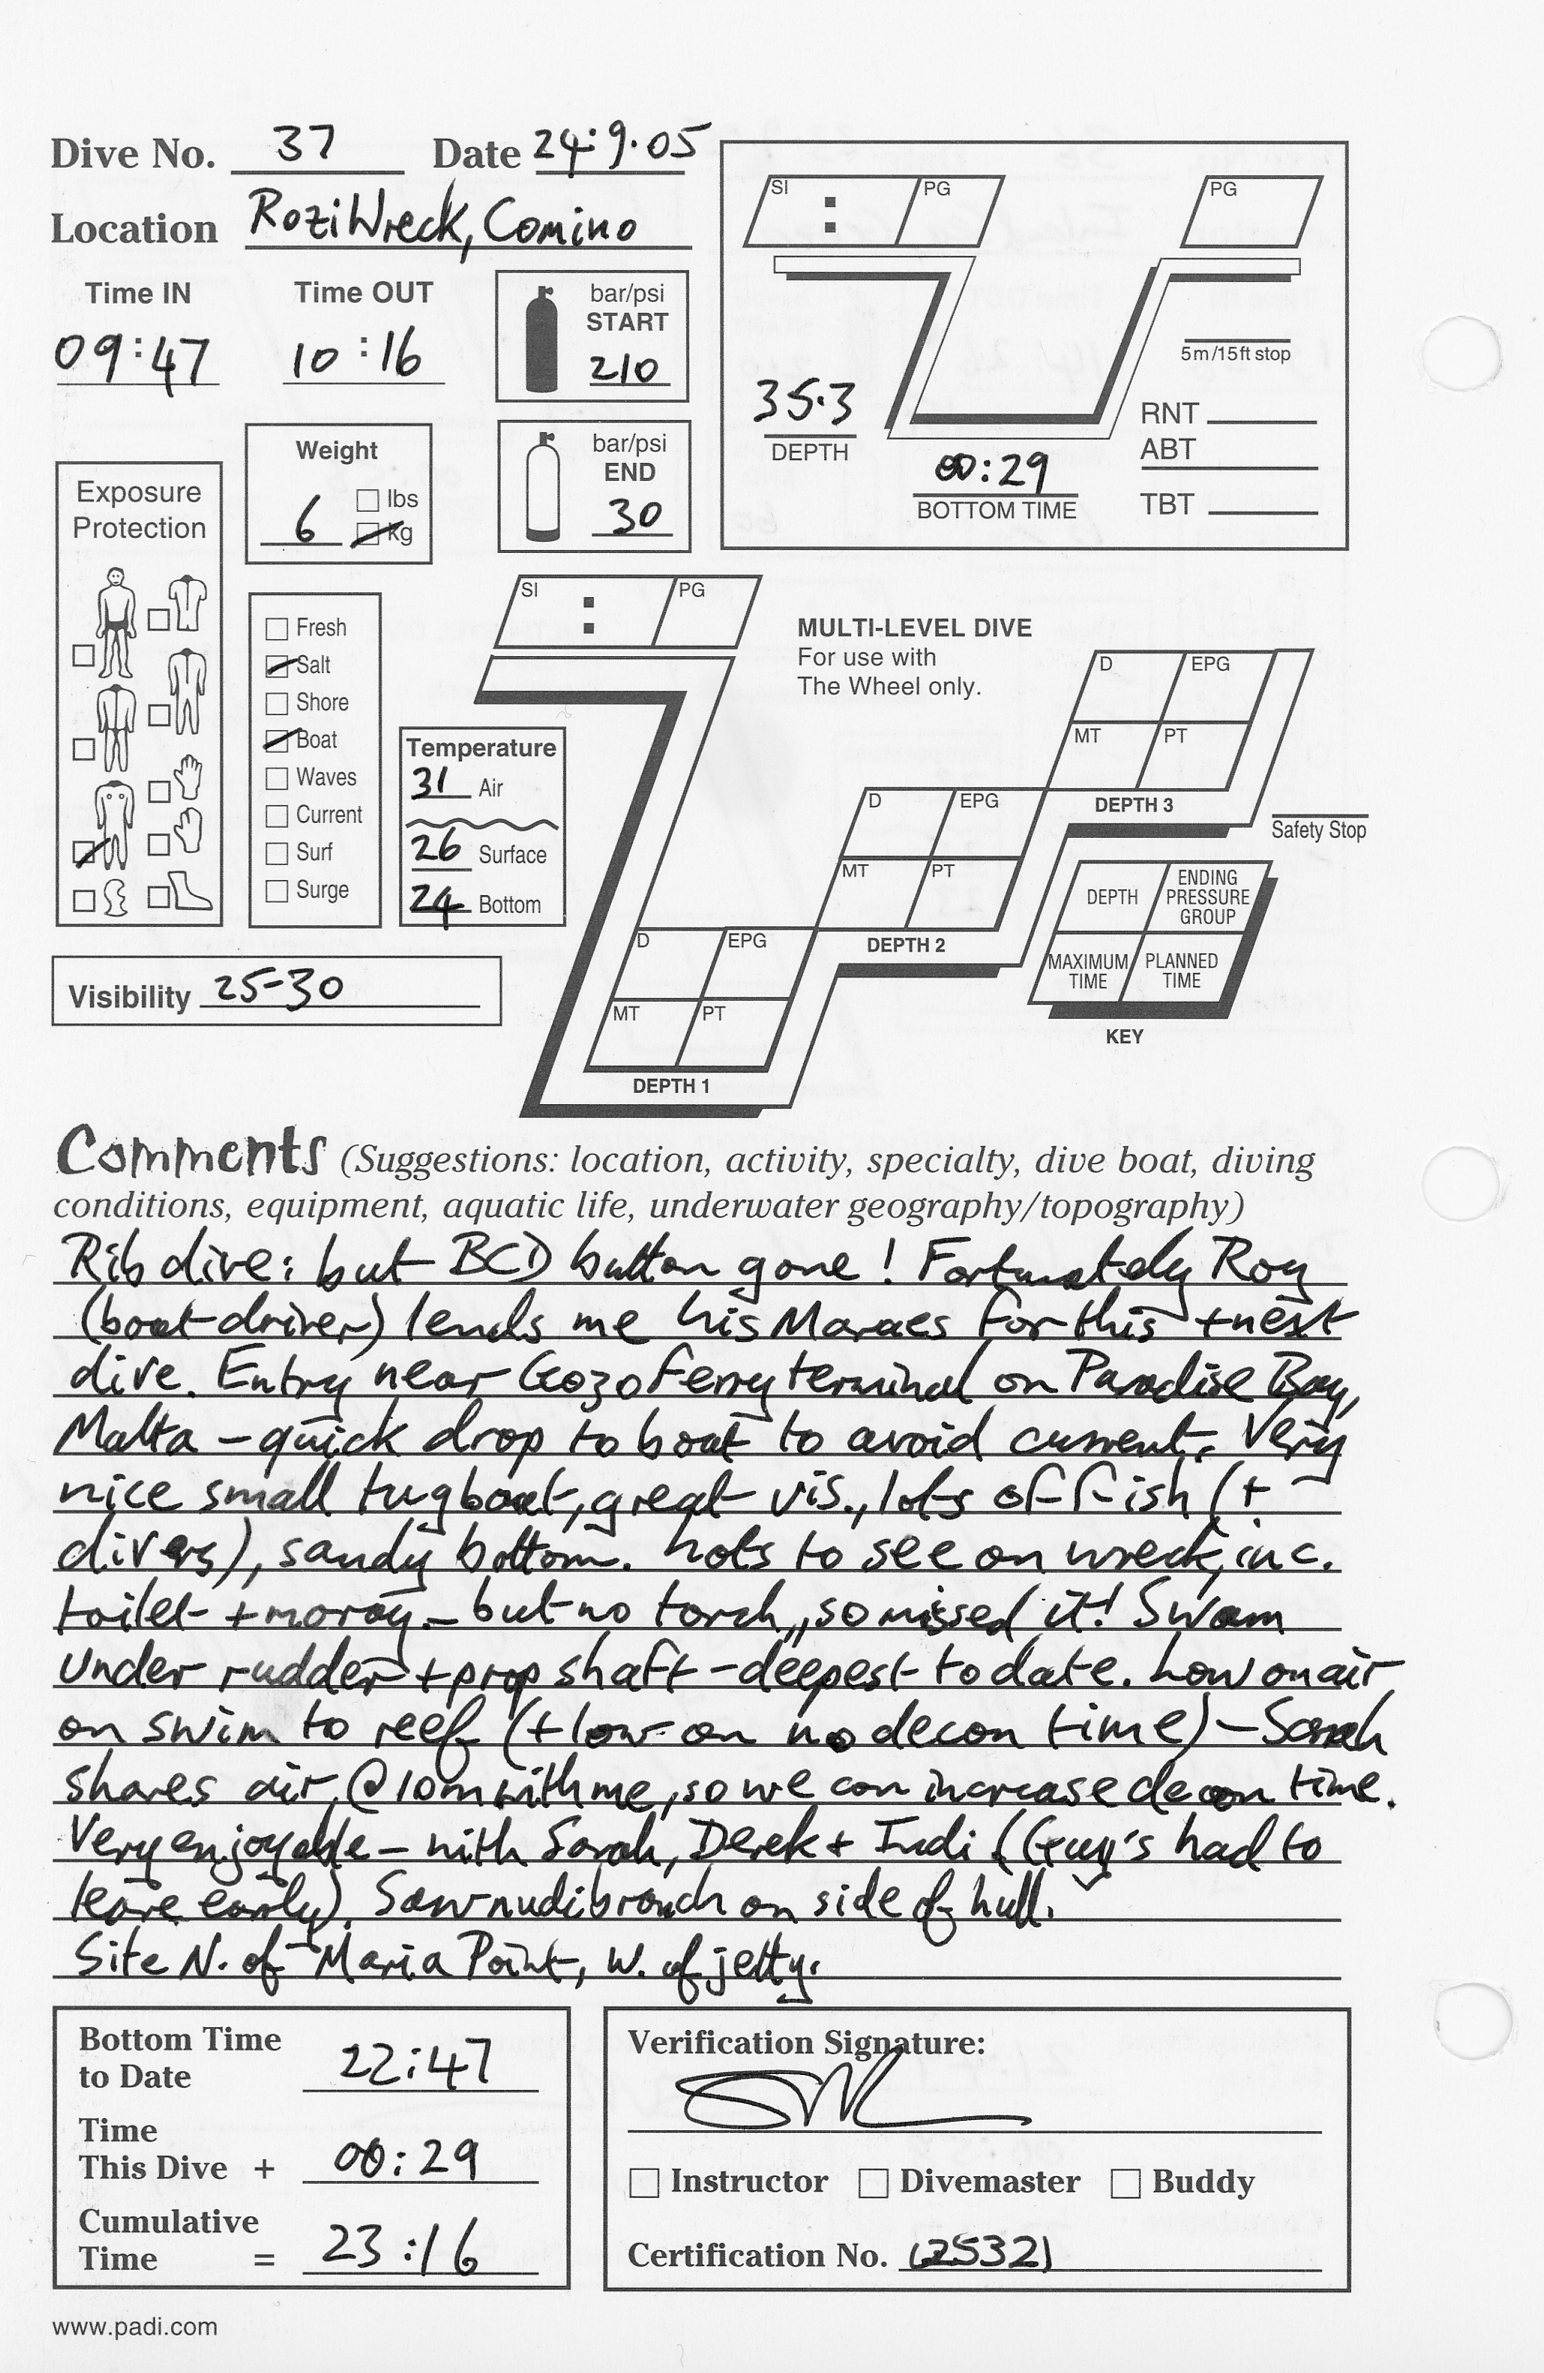 Dive No. 37 Date 24:9.05
Location Rozi Wreck, Comino
SI : PG PG
Time IN Time OUT
09:47 10:16
bar/psi
START
210
5m/15ft stop
35.3
DEPTH
00:29
BOTTOM TIME
RNT
ABT
TBT
Weight
6 lbs
kg
bar/psi
END
30
Exposure
Protection
Fresh
Salt
Shore
Boat
Waves
Current
Surf
Surge
Temperature
31 Air
26 Surface
24 Bottom
Visibility 25-30
SI : PG
MULTI-LEVEL DIVE
For use with
The Wheel only.
D EPG
MT PT
DEPTH 3
Safety Stop
D EPG
MT PT
DEPTH 2
D EPG
MT PT
DEPTH 1
DEPTH ENDING PRESSURE GROUP
MAXIMUM TIME PLANNED TIME
KEY
Comments (Suggestions: location, activity, specialty, dive boat, diving
conditions, equipment, aquatic life, underwater geography/topography)
Rib dive: but BCD button gone! Fortunately Roy
(boat-driver) lends me his Maraes for this + next
dive. Entry near Gozo ferry terminal on Paradise Bay,
Malta - quick drop to boat to avoid current. Very
nice small tugboat, great vis., lots of fish (+
divers), sandy bottom. Lots to see on wreck, inc.
toilet + moray - but no torch, so missed it! Swam
under rudder + prop shaft - deepest to date. Low on air
on swim to reef (+ low on no decon time) - Sarah
shares air @ 10m with me, so we can increase decon time.
Very enjoyable - with Sarah, Derek + Indi (Guy's had to
leave early). Saw nudibranch on side of hull.
Site N. of Maria Point, W. of jetty.
Bottom Time
to Date 22:47
Time
This Dive + 00:29
Cumulative
Time = 23:16
Verification Signature:
Instructor Divemaster Buddy
Certification No.
www.padi.com